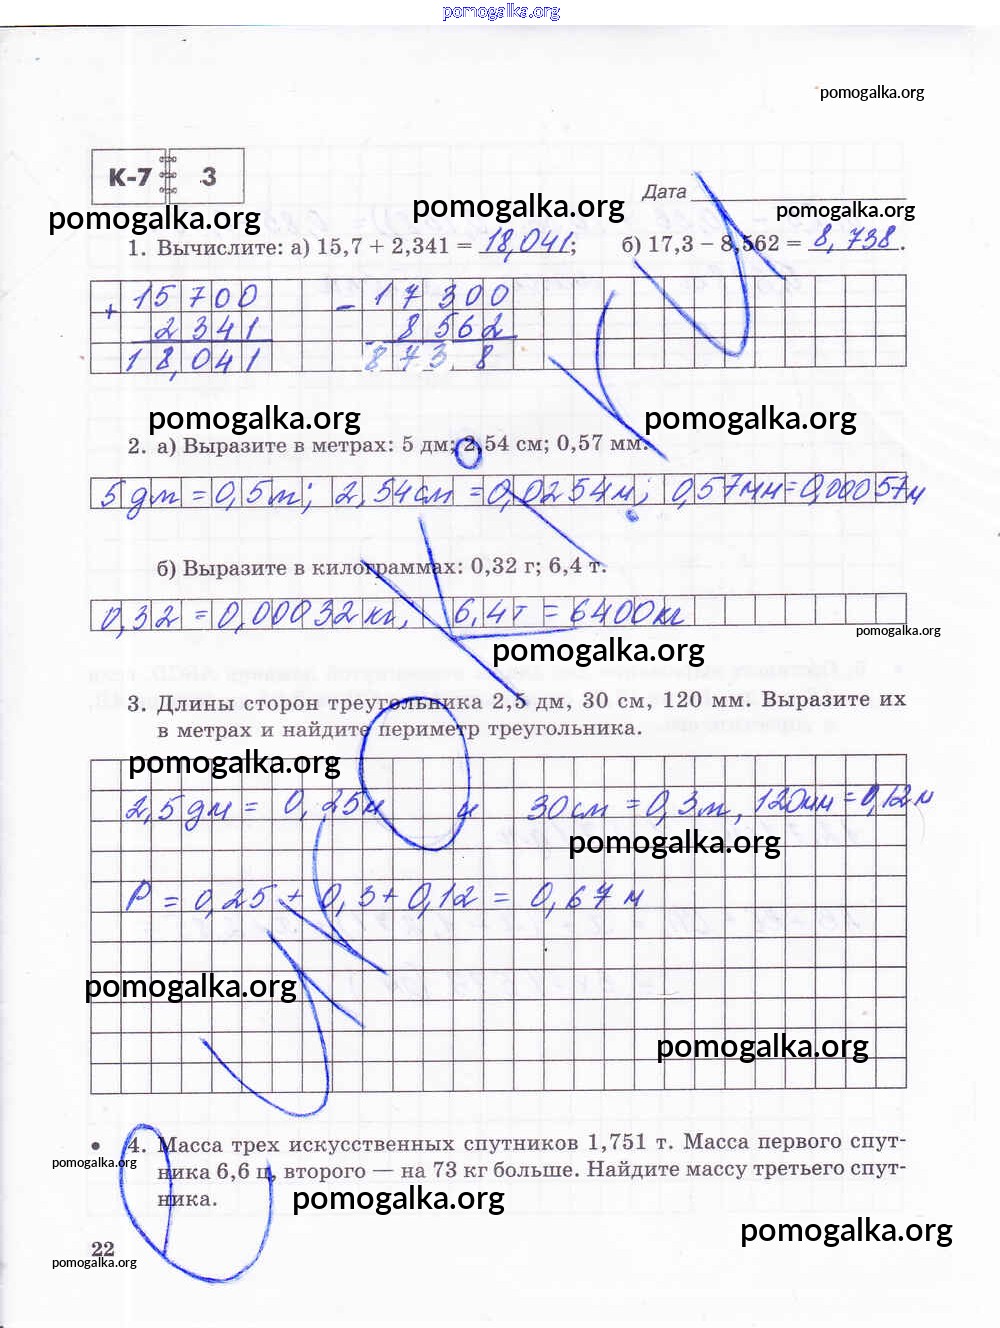 pomogalka.org
pomogalka.org
К-7 3
Дата
pomogalka.org pomogalka.org pomogalka.org
1. Вычислите: а) 15,7 + 2,341 = 18,041; б) 17,3 – 8,562 = 8,738.
+ 15700 - 17300
2341 8562
18,041 8738
pomogalka.org pomogalka.org
2. а) Выразите в метрах: 5 дм; 2,54 см; 0,57 мм.
5 дм = 0,5 м; 2,54 см = 0,0254 м; 0,57 мм = 0,00057 м
б) Выразите в килограммах: 0,32 г; 6,4 т.
0,32 = 0,00032 кг, 6,4 т = 6400 кг
pomogalka.org
pomogalka.org
3. Длины сторон треугольника 2,5 дм, 30 см, 120 мм. Выразите их
в метрах и найдите периметр треугольника.
pomogalka.org
2,5 дм = 0,25 м и 30 см = 0,3 м, 120 мм = 0,12 м
pomogalka.org
P = 0,25 + 0,3 + 0,12 = 0,67 м
pomogalka.org
pomogalka.org
• 4. Масса трех искусственных спутников 1,751 т. Масса первого спут-
pomogalka.org
ника 6,6 ц, второго — на 73 кг больше. Найдите массу третьего спут-
ника.
pomogalka.org
pomogalka.org
22
pomogalka.org